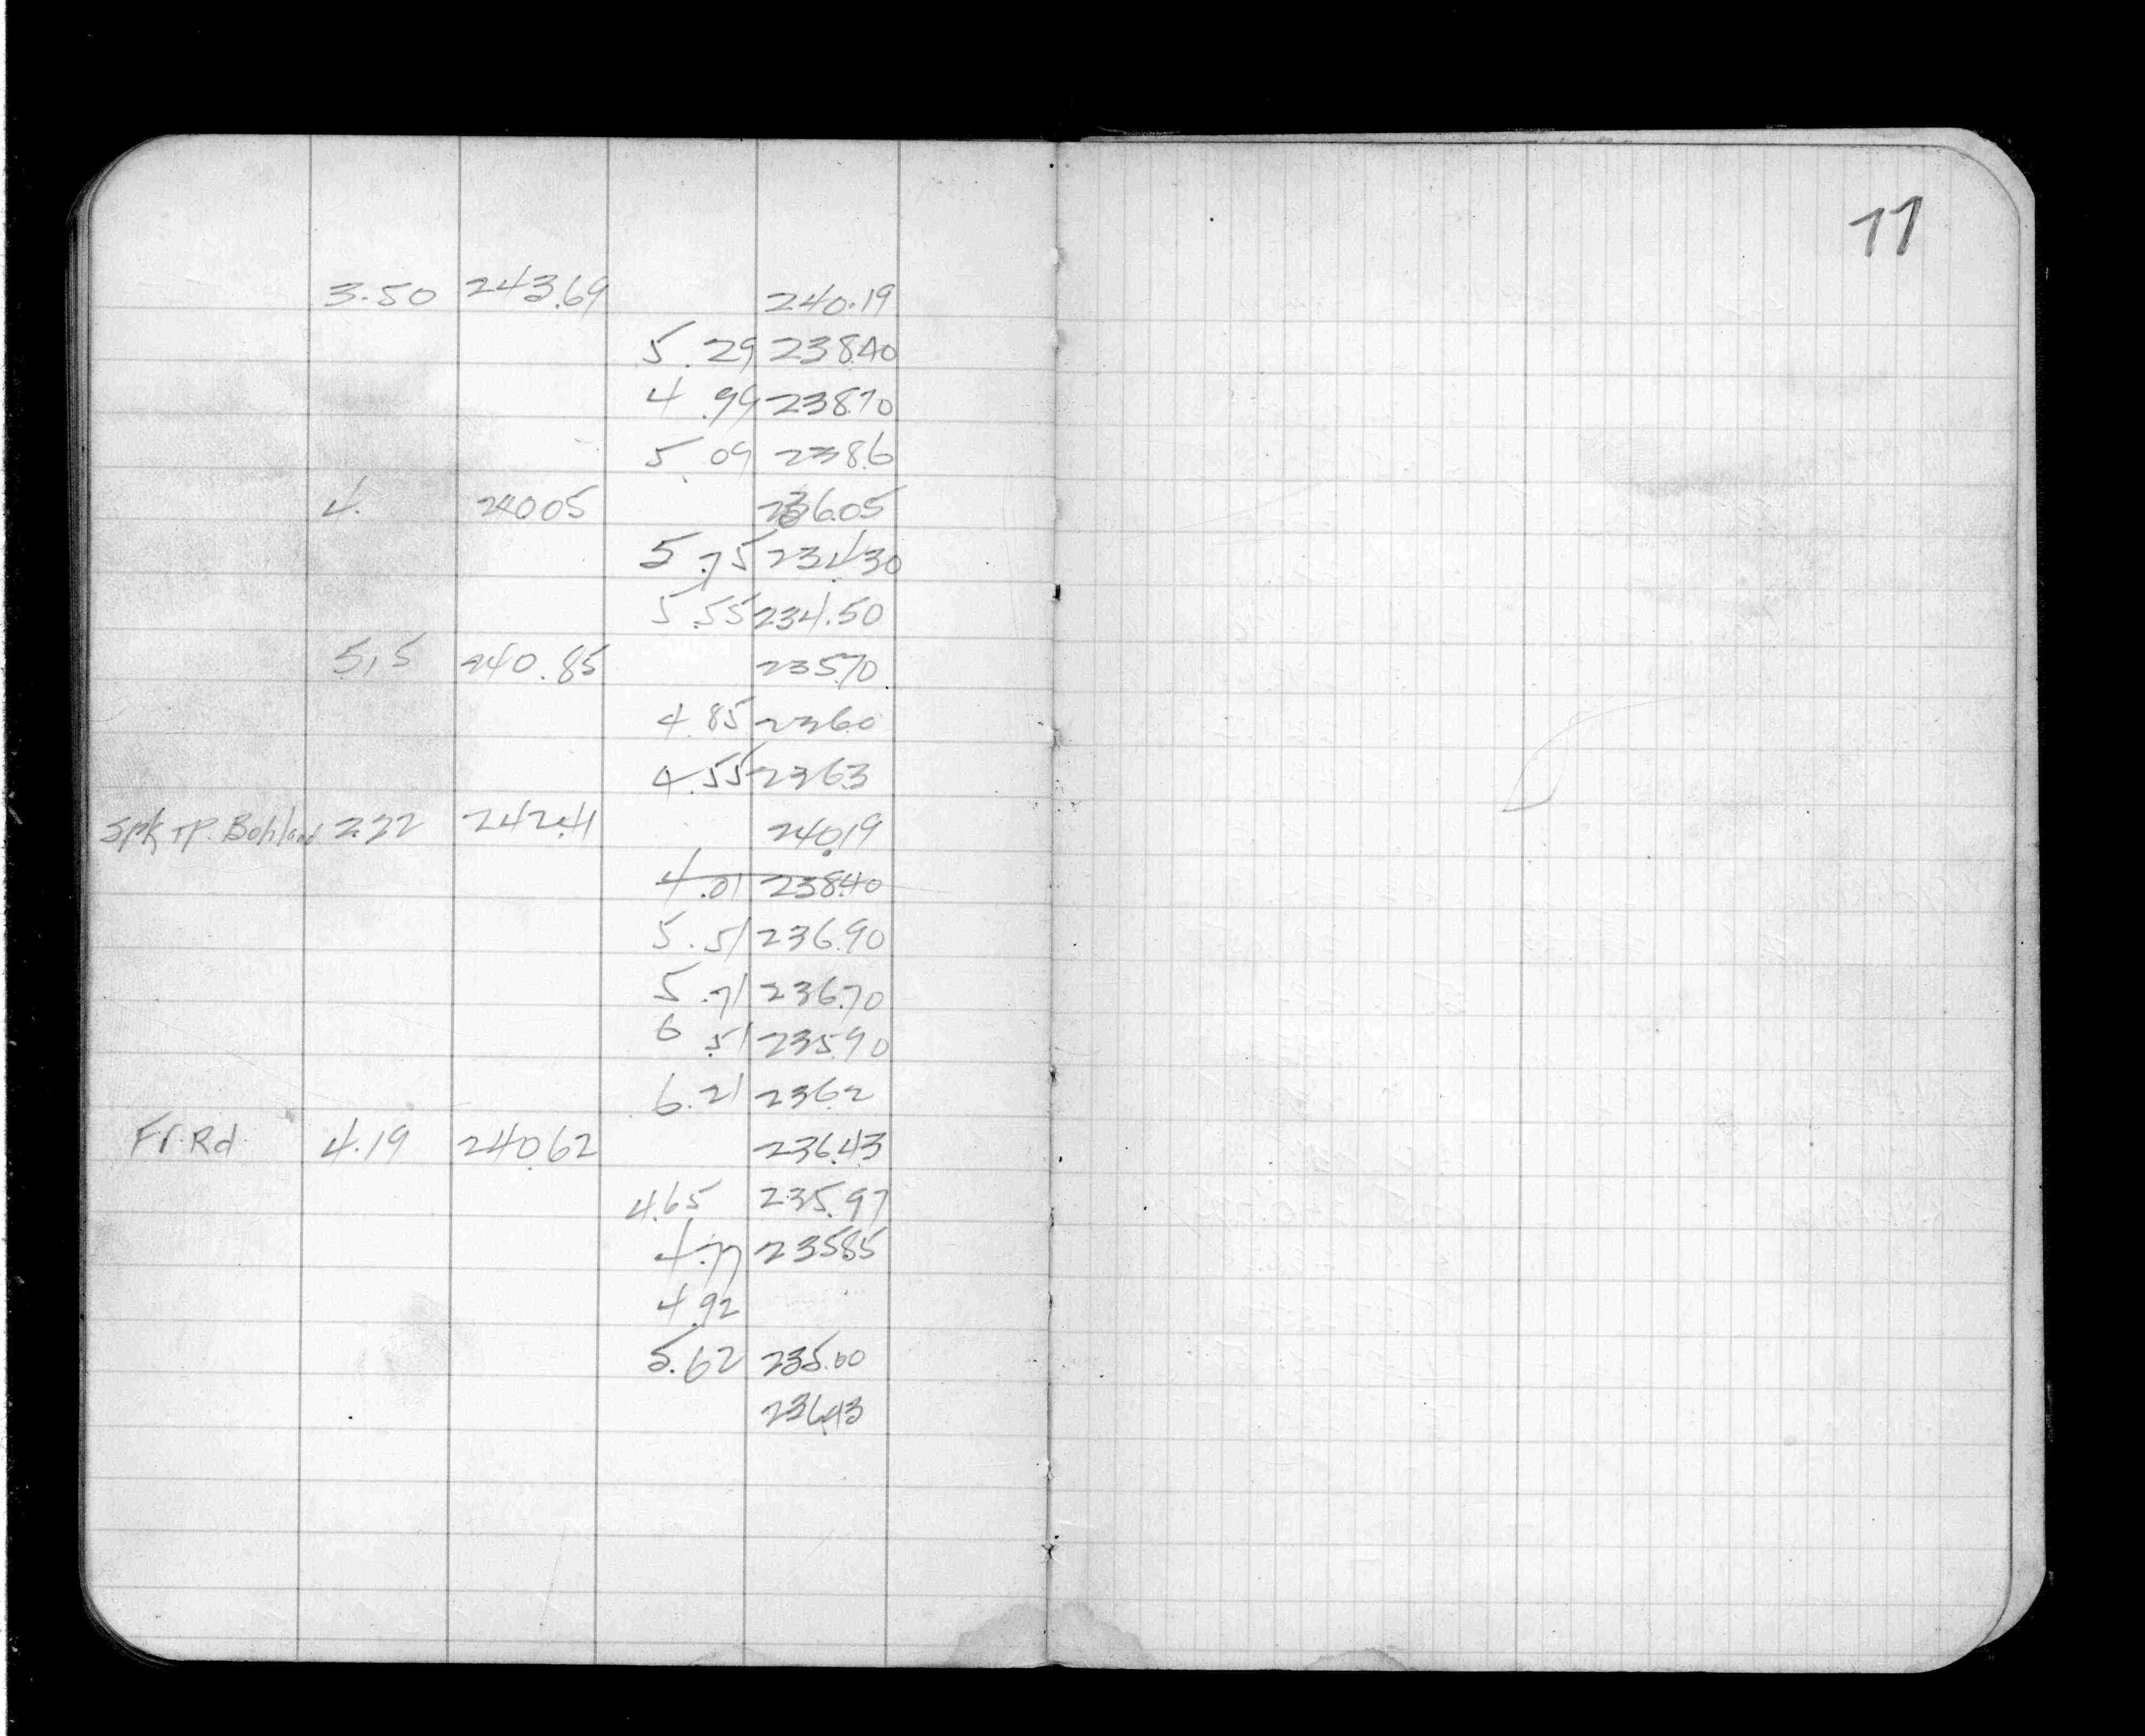 77
3.50 243.69 240.19
5.29 238.40
4.99 238.70
5.09 238.6
4. 240.05 236.05
5.75 234.30
5.55 234.50
5.15 240.85 235.70
4.85 236.0
4.55 236.3
Spk TP. Bohland 2.22 242.41 240.19
4.01 238.40
5.51 236.90
5.71 236.70
6.51 235.90
6.21 236.2
Fr Rd 4.19 240.62 236.43
4.65 235.97
4.77 235.85
4.92
5.62 235.00
236.43